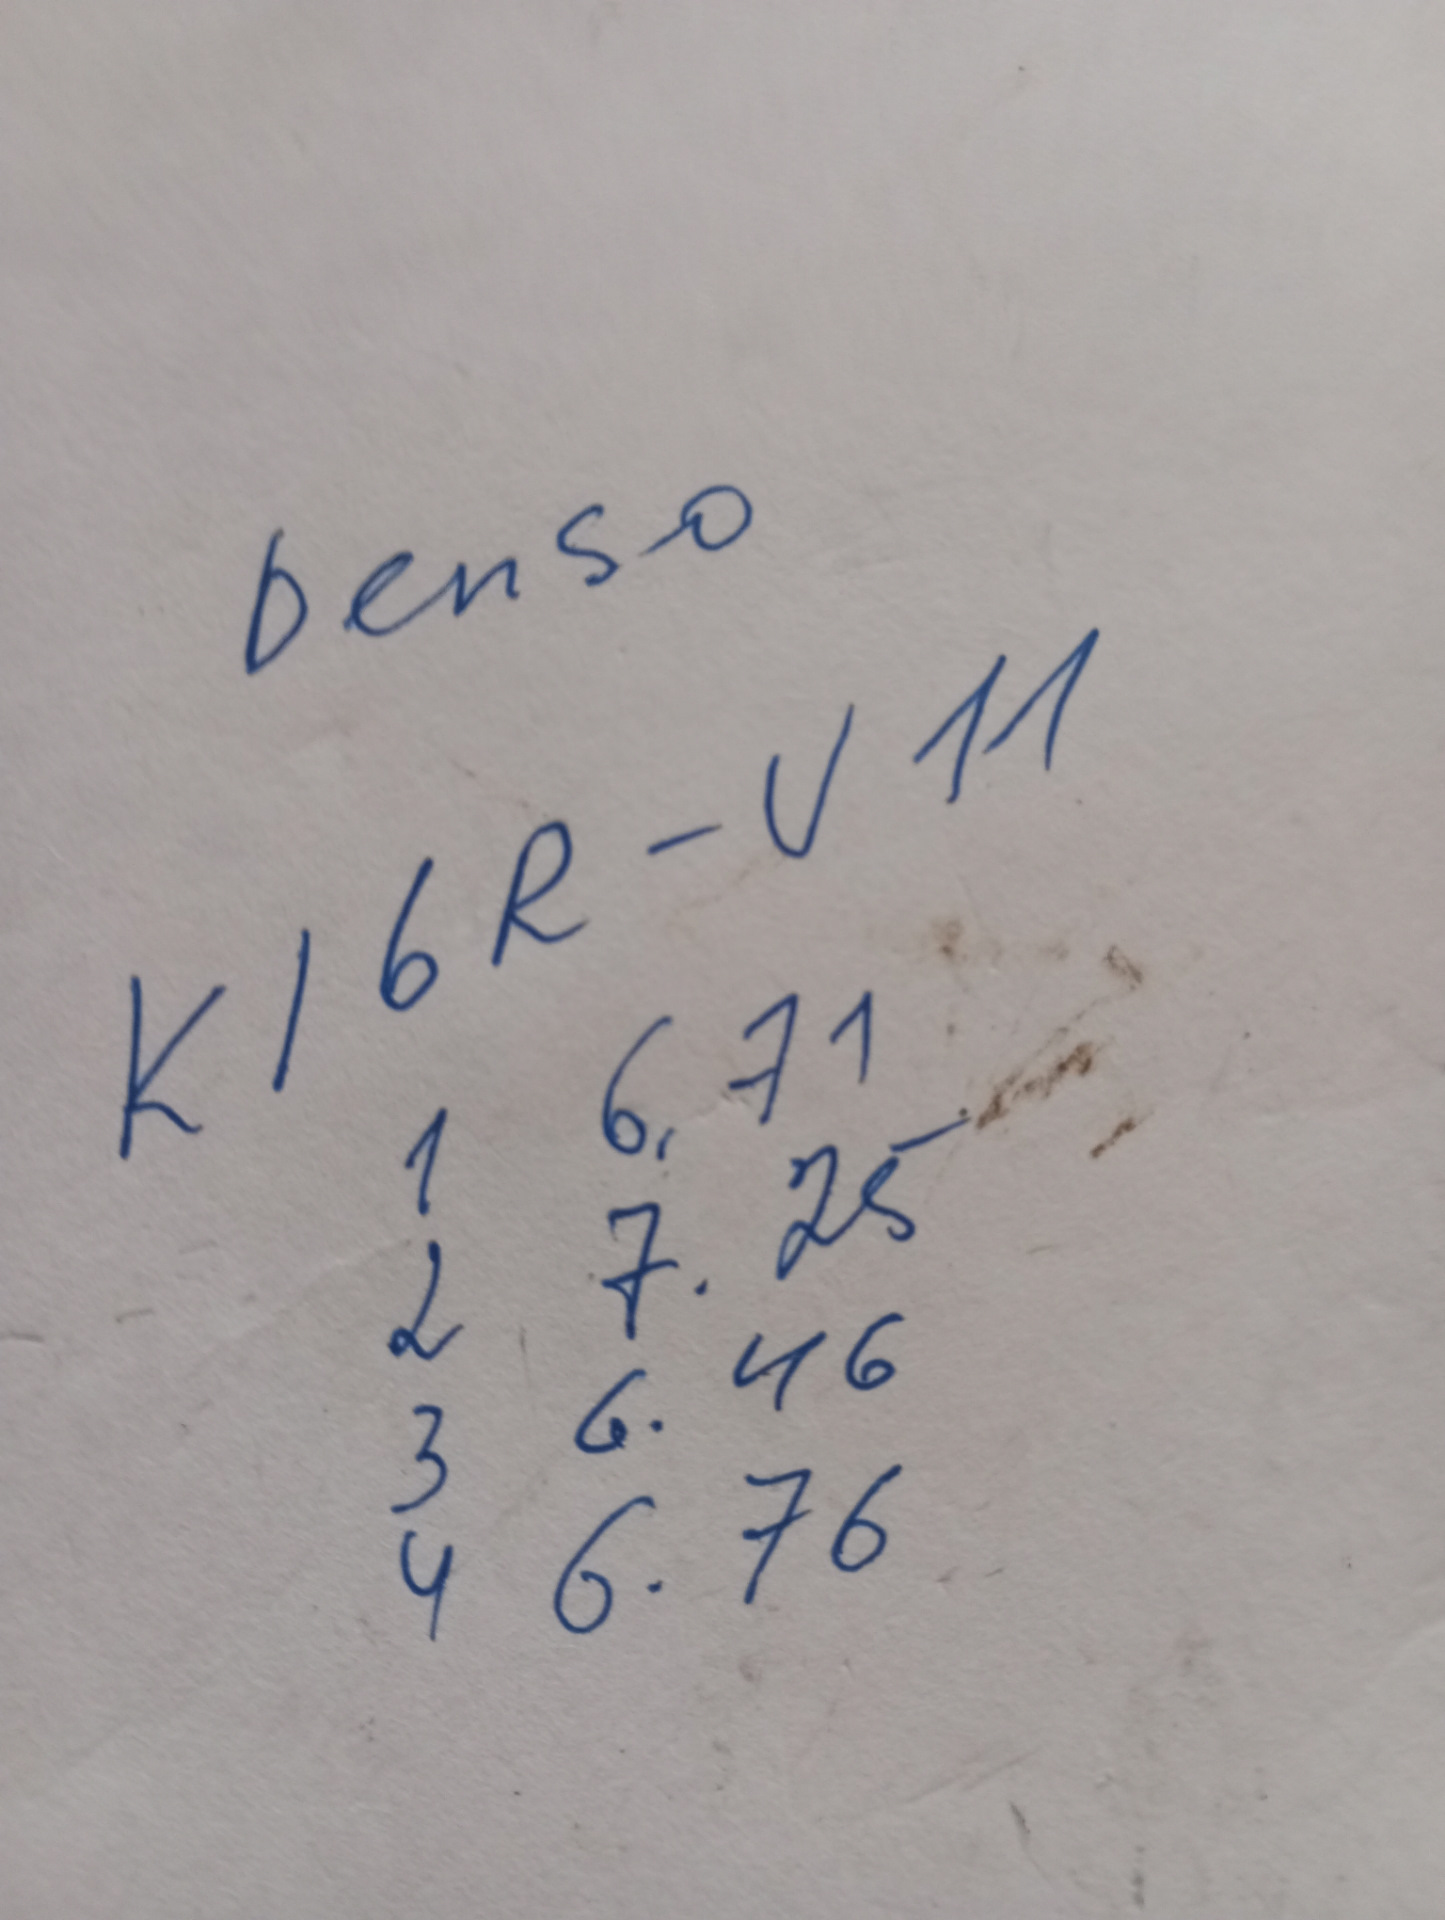 Denso
K16R-U11
1 6.71
2 7.25
3 6.46
4 6.76